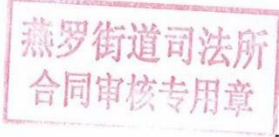 燕罗街道司法所
合同审核专用章